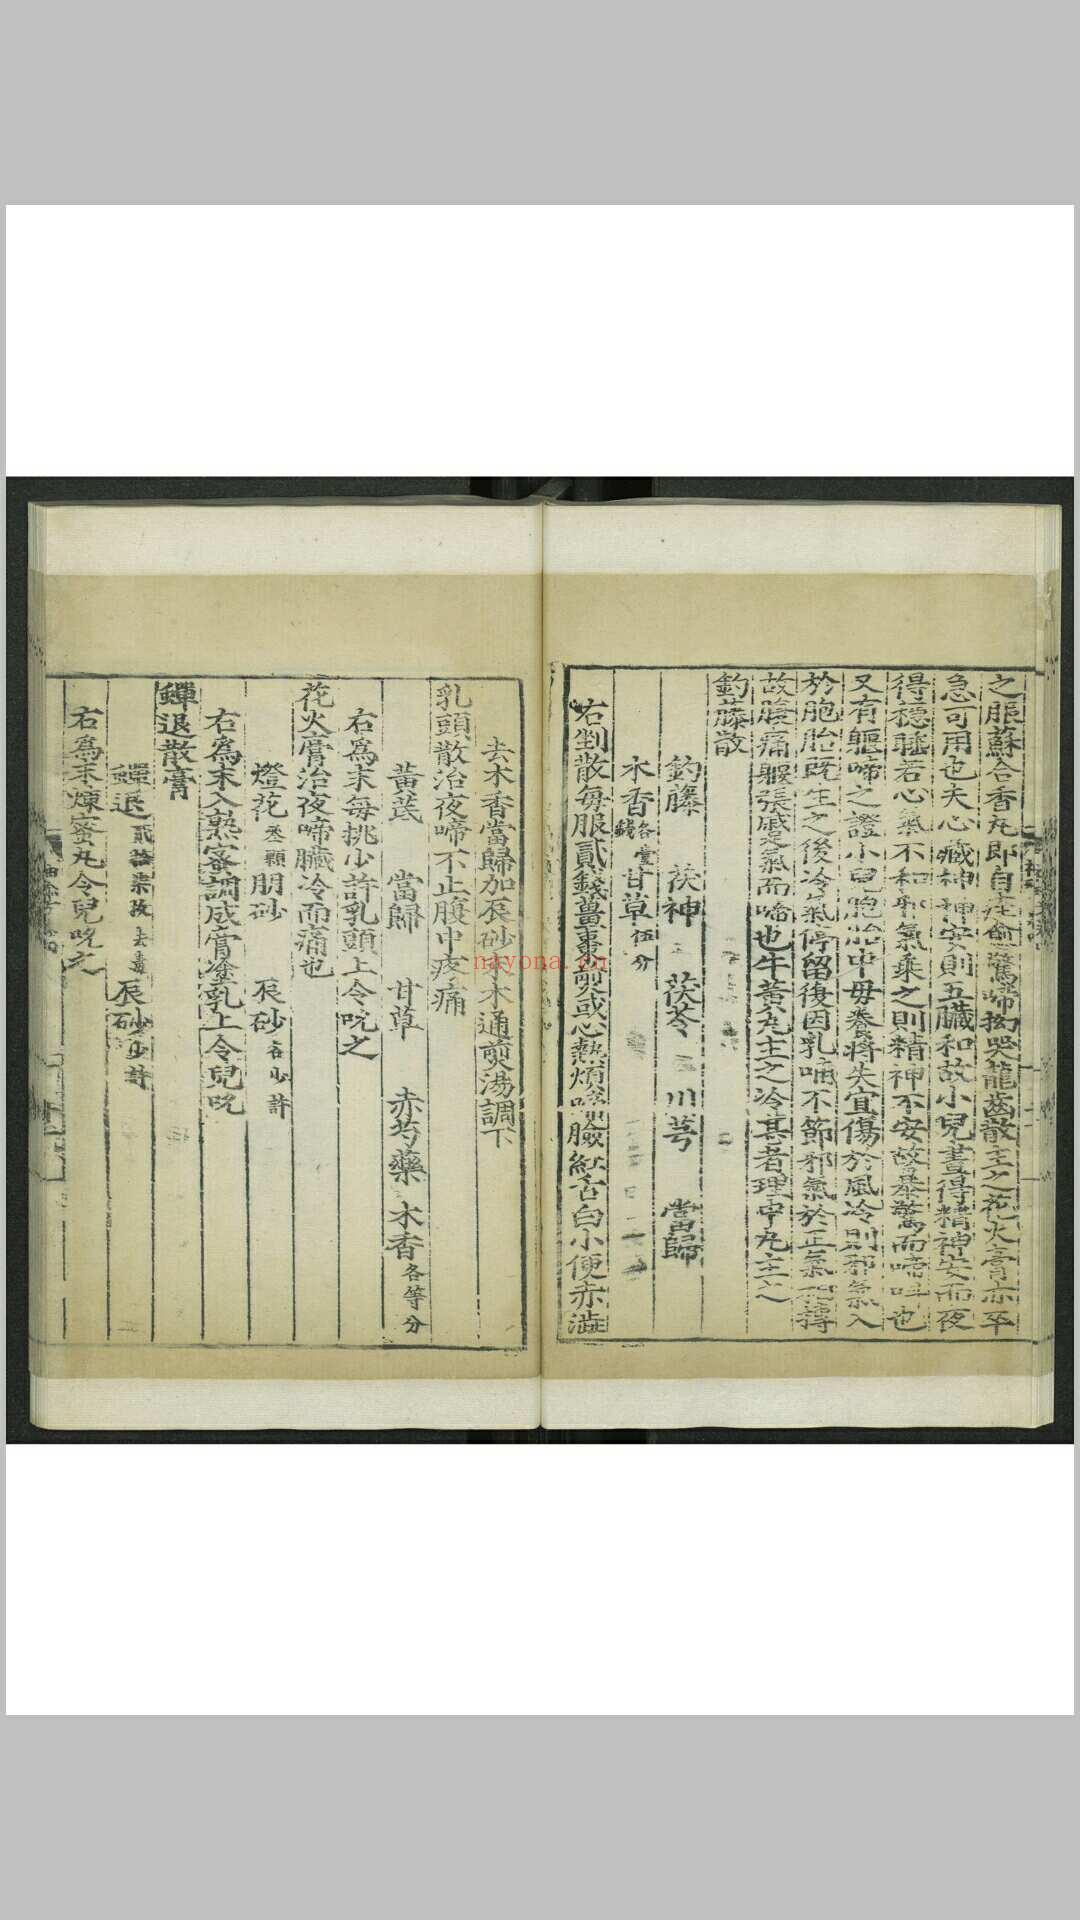 之服蘇合香丸即自痊愈驚啼拗哭龍齒散主之花火膏亦卒
急可用也夫心藏神神安則五臟和故小兒晝得精神安而夜
得穏睡若心氣不和邪氣乗之則精神不安故暴驚而啼叫也
又有軀啼之證小兒胞胎中母養將失宜傷於風冷則邪氣入
於胞胎既生之後冷氣停留復因乳哺不節邪氣於正氣相搏
故腹痛軀張蹙氣而啼也牛黃丸主之冷甚者理中丸主之
釣藤散
釣藤 茯神 茯苓 川芎 當歸
木香各壹錢 甘草伍分
右剉散每服貳錢薑棗煎或心熱煩啼臉紅舌白小便赤澁
去木香當歸加辰砂木通煎湯調下
乳頭散治夜啼不止腹中疼痛
黃芪 當歸 甘草 赤芍藥 木香各等分
右爲末每挑少許乳頭上令吮之
花火膏治夜啼臟冷而痛也
燈花叁顆 朋砂 辰砂各少許
右爲末入熟蜜調成膏塗乳上令兒吮
蟬退散膏
蟬退貳拾柒枚去毒 辰砂少許
右爲末煉蜜丸令兒吮之
nayona.cn